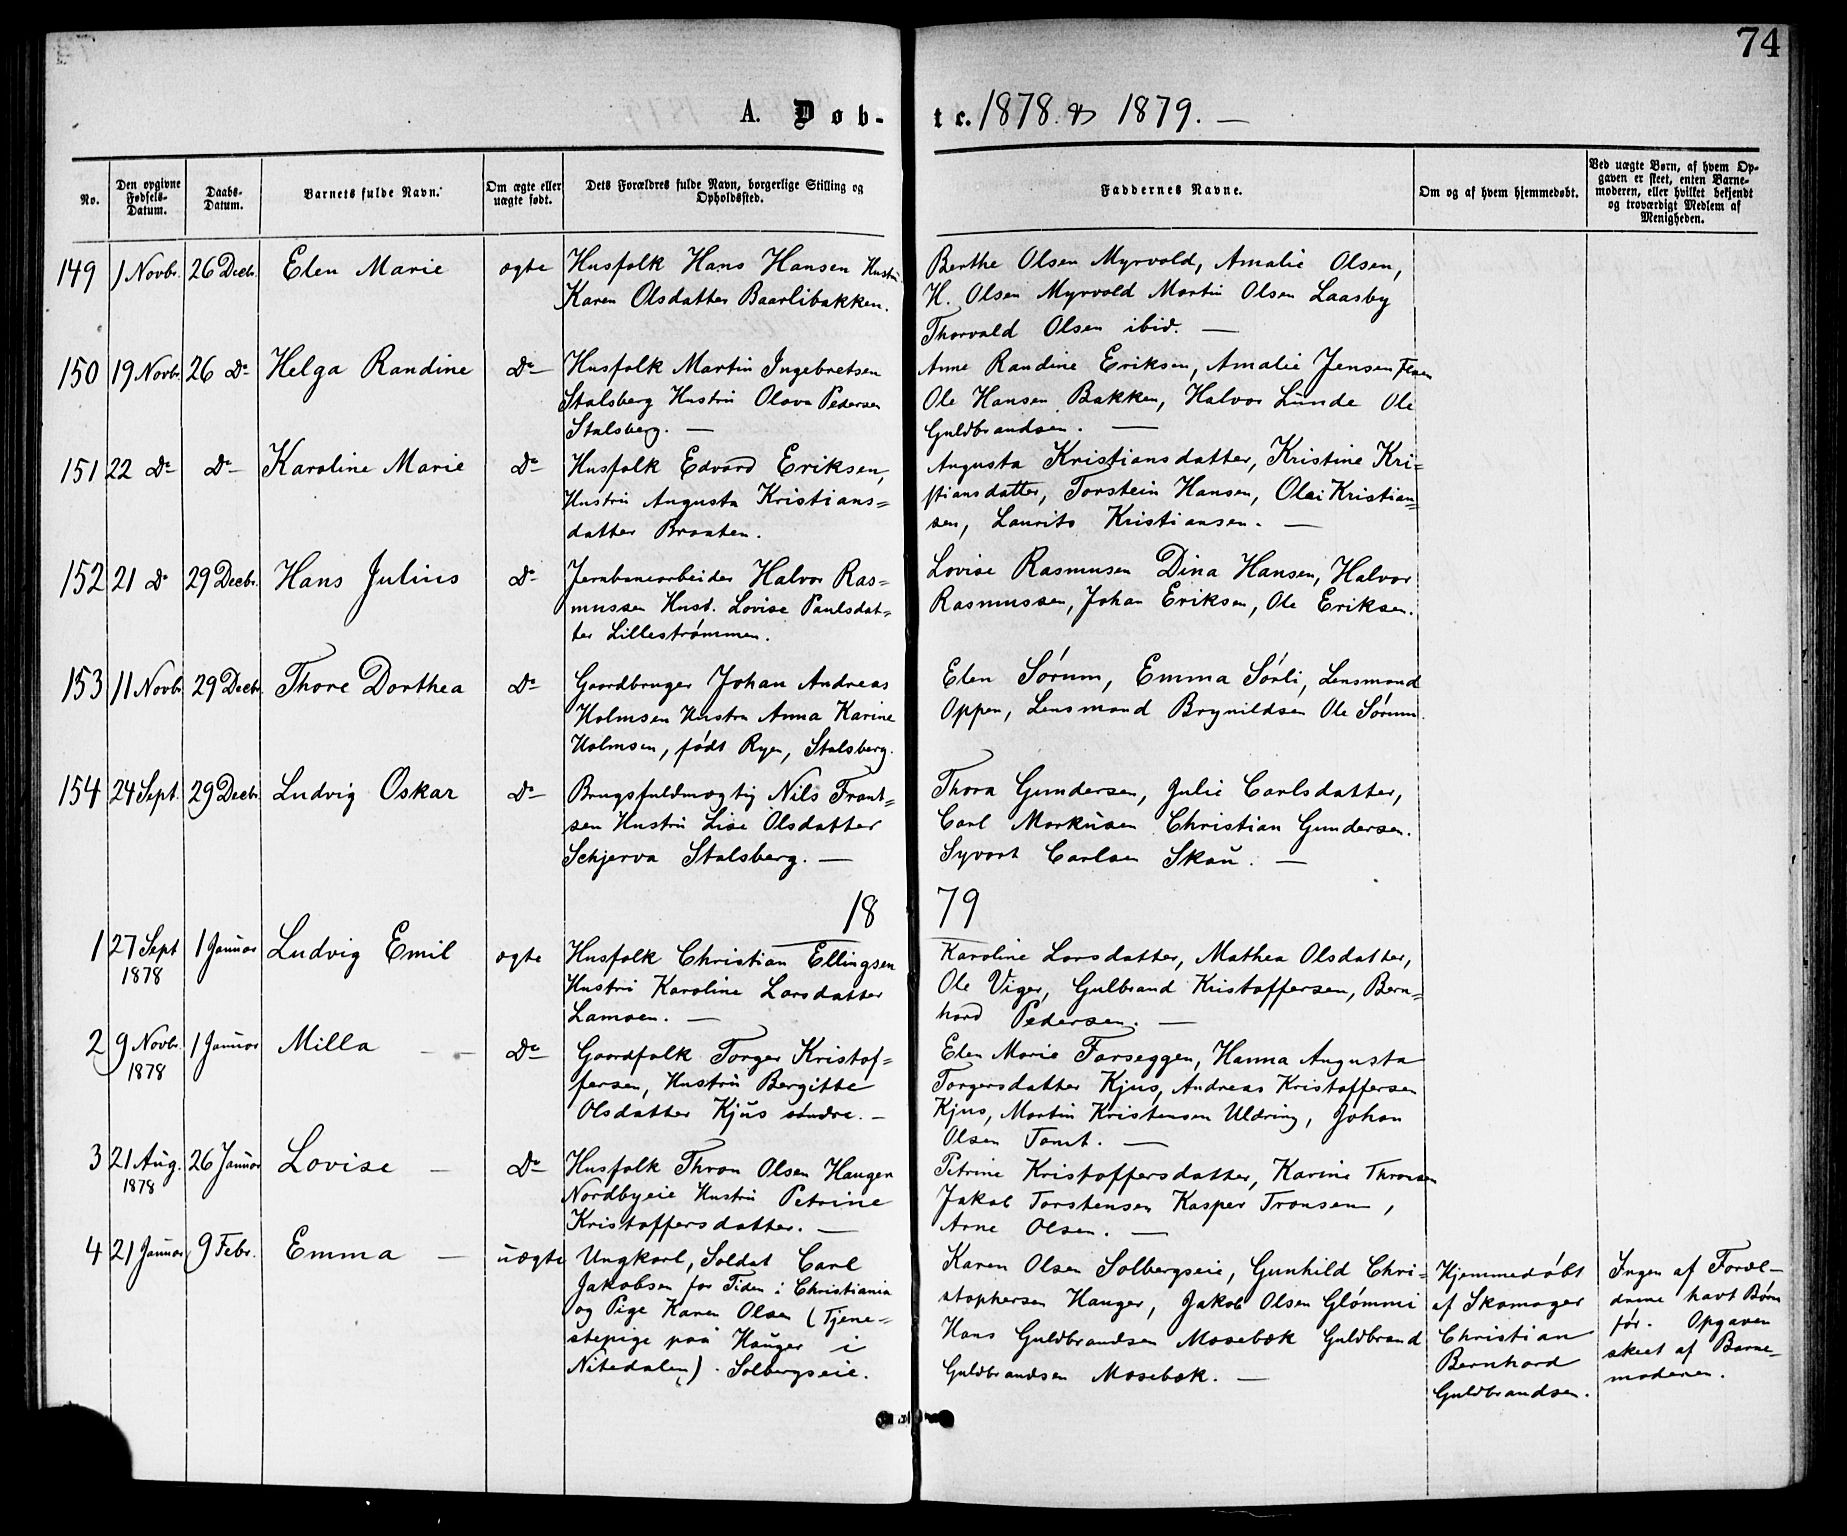 74
A. Døb- te. 1878 & 1879. —
No.
Den opgivne Fødsels-Datum.
Daabs-Datum.
Barnets fulde Navn.
Om ægte eller uægte født.
Dets Forældres fulde Navn, borgerlige Stilling og Opholdssted.
Faddernes Navne.
Om og af hvem hjemmedøbt.
Ved uægte Børn, af hvem Opgaven er skeet, enten Barnemoderen, eller hvilket bekjendt og troværdigt Medlem af Menigheden.
149 1 Novbr. 26 Decb. Elen Marie ægte Husfolk Hans Hansen Hustru
Karen Olsdatter Baarlibakken.
Berthe Olsen Myrvold, Amalie Olsen,
H. Olsen Myrvold Martin Olsen Laasby
Thorvald Olsen ibid. —
150 19 Novbr. 26 Do Helga Randine Do Husfolk Martin Ingebretsen
Stalsberg Hustru Olava Pedersen
Stalsberg. —
Anne Randine Eriksen, Amalie Jensen
Ole Hansen Bakken, Halvor Lunde Ole
Guldbrandsen. —
151 22 Do Do Karoline Marie Do Husfolk Edvard Eriksen,
Hustru Augusta Kristians=
datter Braaten.
Augusta Kristiansdatter, Kristine Kri=
stiansdatter, Torstein Hansen, Olai Kristian=
sen, Laurits Kristiansen. —
152 21 Do 29 Decbr. Hans Julius Do Jernbanearbeider Halvor Ras=
mussen Hust. Lovise Paulsdat=
ter Lillestrømmen.
Lovise Rasmusen Dina Hansen, Halvor
Rasmussen, Johan Eriksen, Ole Eriksen.
153 11 Novbr 29 Decbr. Thore Dorthea Do Gaardbruger Johan Andreas
Holmsen Hustru Anna Karine
Holmsen, født Ryen, Stalsberg.
Elen Sørum, Emma Sørli, Lensmand
Oppen, Lensmand Brynildsen Ole Sørum.
154 24 Sept. 29 Decbr. Ludvig Oskar Do Brugsfuldmægtig Nils Frant=
sen Hustru Lise Olsdatter
Schjerva Stalsberg. —
Thora Gundersen, Julie Carlsdatter,
Carl Markusen Christian Gundersen.
Syvert Carlsen Skau. —
18 79
1 27 Sept 1878 1 Januar Ludvig Emil ægte Husfolk Christian Ellingsen
Hustru Karoline Larsdatter
Lamoen. —
Karoline Larsdatter, Mathea Olsdatter,
Ole Viger, Gulbrand Kristoffersen, Bern=
hard Pedersen. —
2 9 Novbr. 1878 1 Januar Milla — — Do Gaardfolk Torger Kristof=
fersen, Hustru Bergitte
Olsdatter Kjus søndre. —
Elen Marie Farseggen, Hanna Augusta
Torgersdatter Kjus, Andreas Kristoffersen
Kjus, Martin Kristensen Uldring, Johan
Olsen Tomt. —
3 21 Aug. 1878 26 Januar Lovise — Do Husfolk Thron Olsen Haugen
Nordbyeie Hustru Petrine
Kristoffersdatter. —
Petrine Kristoffersdatter, Karine Thronsen
Jakob Torstensen Kasper Tronsen,
Arne Olsen. —
4 21 Januar 9 Febr. Emma — uægte Ungkarl, Soldat Carl
Jakobsen for Tiden i Christiania
og Pige Karen Olsen (Tjene=
stepige paa Hauger i
Nitedalen). Solbergseie.
Karen Olsen Solbergseie, Gunhild Chri=
stophersen Hauger, Jakob Olsen Glømmi
Hans Guldbrandsen Mosebæk Guldbrand
Guldbrandsen Mosebæk. —
Hjemmedøbt
af Skomager
Christian
Bernhard
Guldbrandsen.
Ingen af Foræl=
drene havt Børn
før. Opgaven
skeet af Barne=
moderen.